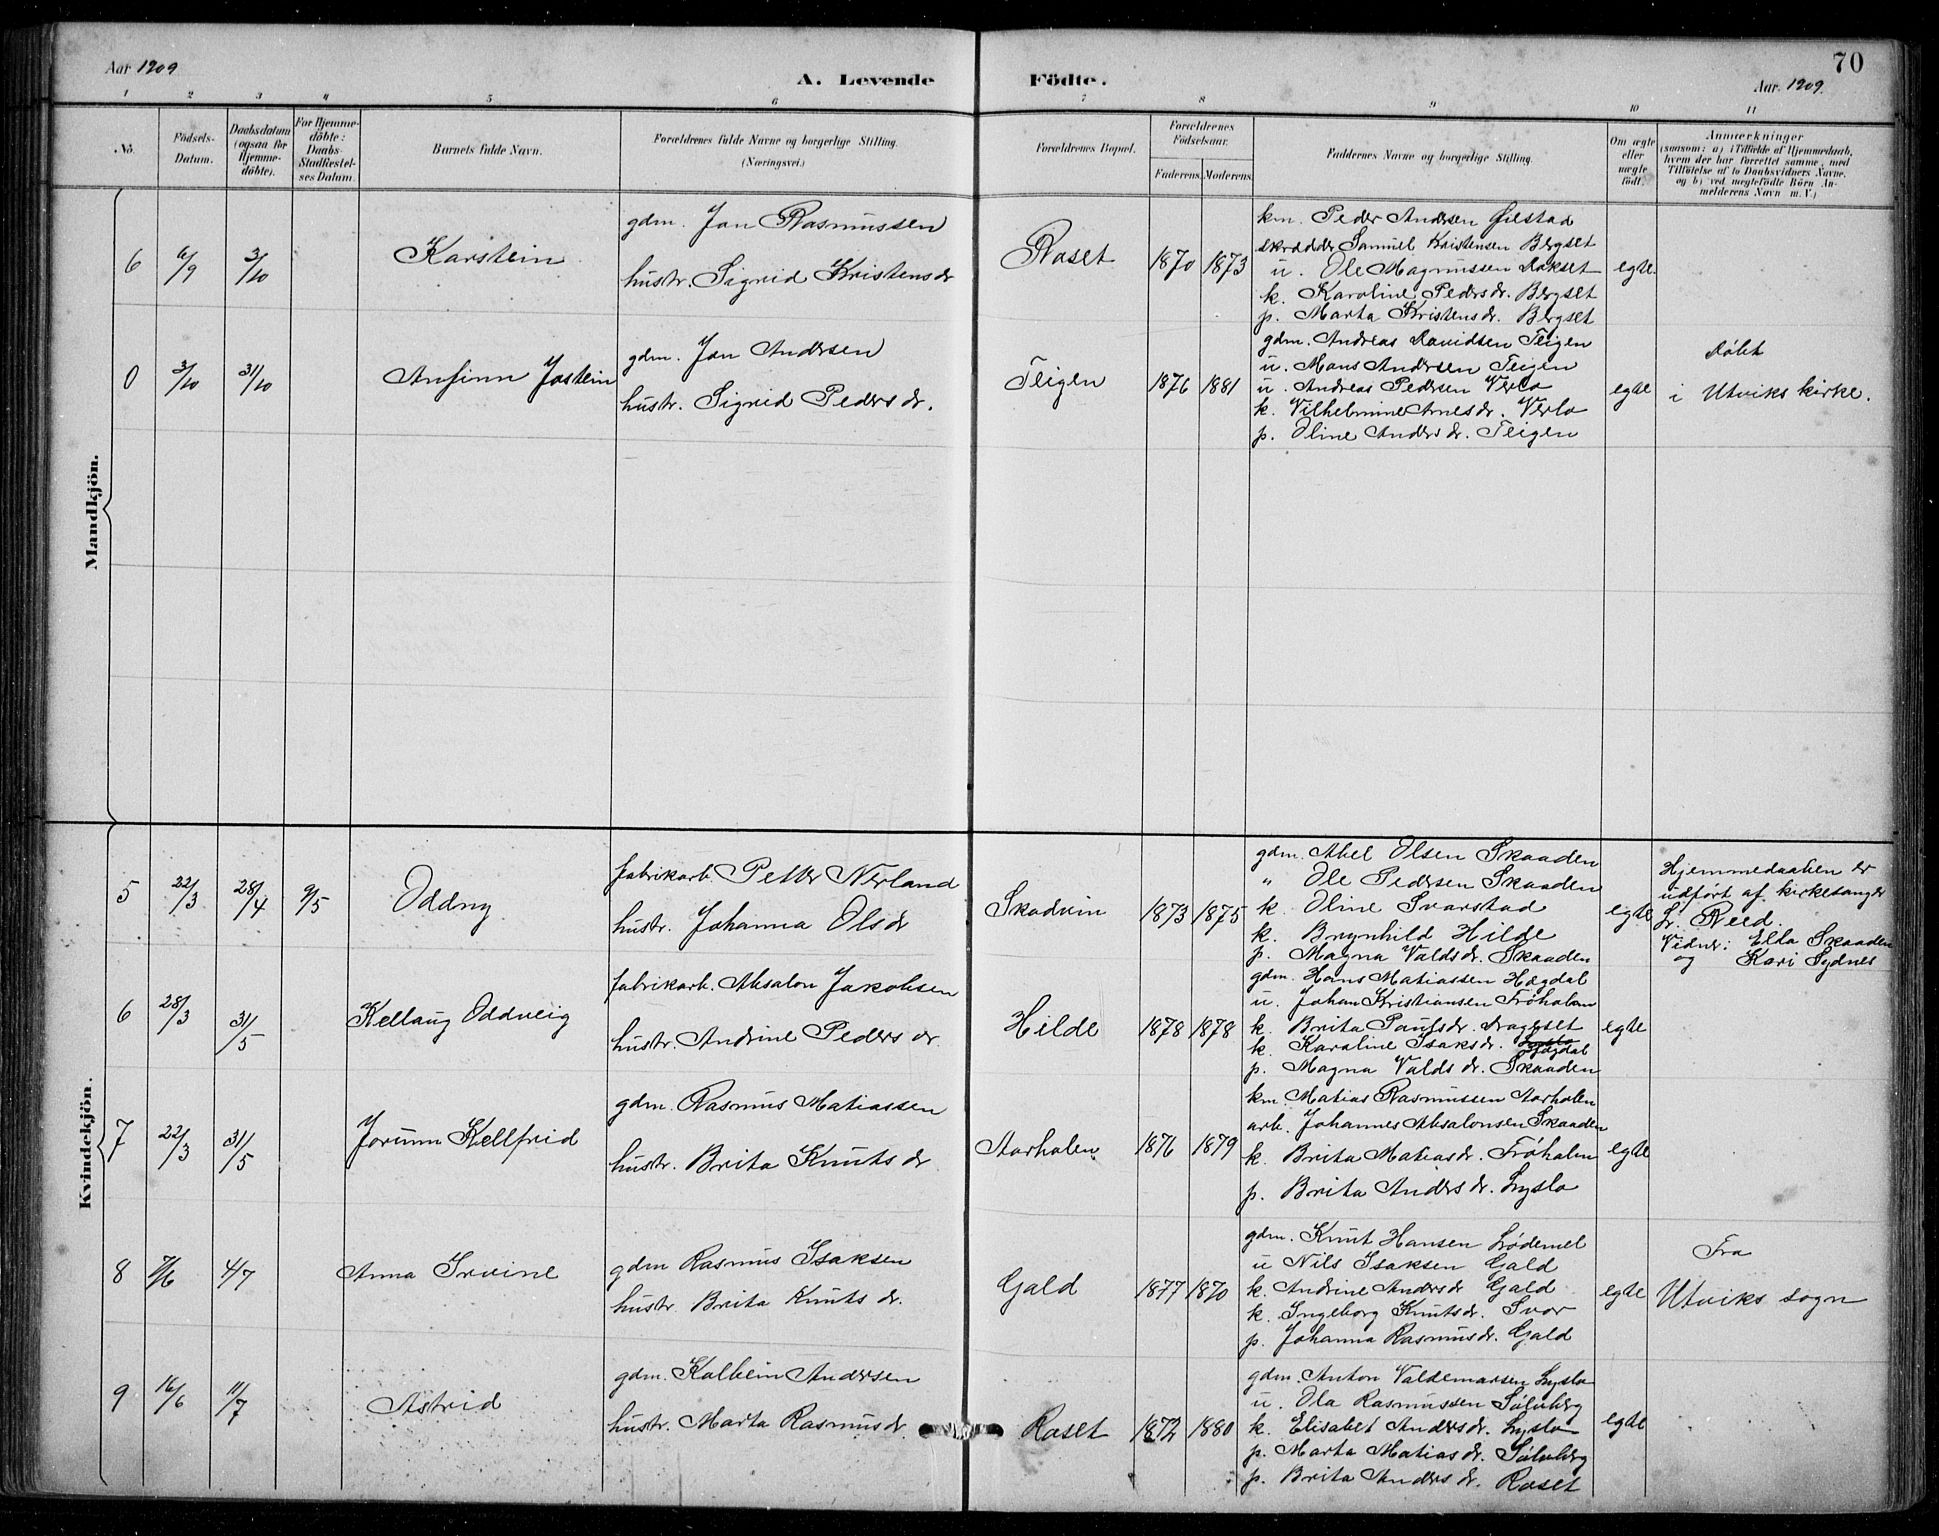 Aar 1909
A. Levende Födte.
70
Aar. 1909.
1 2 3 4 5 6 7 8 9 10 11
No.
Födsels-
Datum.
Daabsdatum
(ogsaa for
Hjemme-
döbte).
For Hjemme-
döbte:
Daabs-
Stadfestel-
ses Datum.
Barnets fulde Navn.
Forældrenes fulde Navne og borgerlige Stilling.
(Næringsvei.)
Forældrenes Bopæl.
Forældrenes
Födselsaar.
Faderens. Moderens.
Faddernes Navne og borgerlige Stilling.
Om ægte
eller
uægte
födt.
Anmærkninger
(saasom: a) i Tilfælde af Hjemmedaab,
hvem der har forrettet samme, med
Tilföielse af to Daabsvidners Navne,
og b) ved uægtefödte Börn An-
melderens Navn m. V.)
Mandkjön.
6 6/9 3/10 Karstein
gdm. Jon Rasmussen
hustr. Sigrid Kristensdr
Roset 1870 1873
km. Peder Andersen Øilstad
skrædder Samuel Kristensen Bergset
u. Ole Magnussen Dokset
k. Karoline Pedersdr. Bergset
p. Marta Kristensdr. Bergset
egte
0 3/10 31/10 Anfinn Jostein
gdm. Jon Andersen
hustr. Sigrid Pedersdr.
Teigen 1876 1881
gdm. Andreas Davidsen Teigen
u. Mons Andersen Teigen
u. Andreas Pedersen Verlo
k. Vilhelmine Arnesdr. Verlo
p. Oline Andersdr. Teigen
egte
Døbt
i Utviks kirke.
Kvindekjön.
5 22/3 28/4 9/5 Oddny
fabrikarb. Petter Nerland
hustr. Johanna Olsdr
Skadvin 1873 1875
gdm. Abel Olsen Skaaden
" Ole Pedersen Skaaden
k. Oline Svarstad
k. Brynhild Hilde
p. Magna Valdsdr. Skaaden
egte
Hjemmedaaben er
udført af kirkesanger
L. Reed.
Vidner: Ella Skaaden
og Kari Sydnes
6 28/3 31/5 Kellaug Oddveig
fabrikarb. Absalon Jakobsen
hustr. Andrine Pedersdr.
Hilde 1878 1878
gdm. Hans Matiassen Hægdal
u. Johan Kristiansen Frøholm
k. Brita Paulsdr. Drageset
k. Karoline Isaksdr. Hægdal
p. Magna Valdsdr. Skaaden
egte
7 22/3 31/5 Jorunn Kellfrid
gdm. Rasmus Matiassen
hustr. Brita Knutsdr
Aarholen 1876 1879
km. Matias Rasmussen Aarholen
arb. Johannes Absalonsen Skaaden
k. Brita Matiasdr. Frøholen
p. Brita Andersdr. Lyslo
egte
8 7/6 4/7 Anna Irvine
gdm Rasmus Isaksen
hustr. Brita Knutsdr.
Gald 1877 1870
gdm. Knut Hansen Lødemel
u Nils Isaksen Gald
k. Andrine Andersdr Gald
k. Ingeborg Knutsdr. Svor
p. Johanna Rasmusdr. Gald
egte
Fra
Utviks sogn
9 16/6 11/7 Astrid
gdm. Kolbein Andersen
hustr. Marta Rasmusdr
Roset 1872 1880
gdm. Anton Valdemarsen Lyslo
u. Ola Rasmussen Sølvberg
k. Elisabet Andersdr. Lyslo
p. Marta Matiasdr. Sølvberg
p. Brita Andersdr. Roset
egte